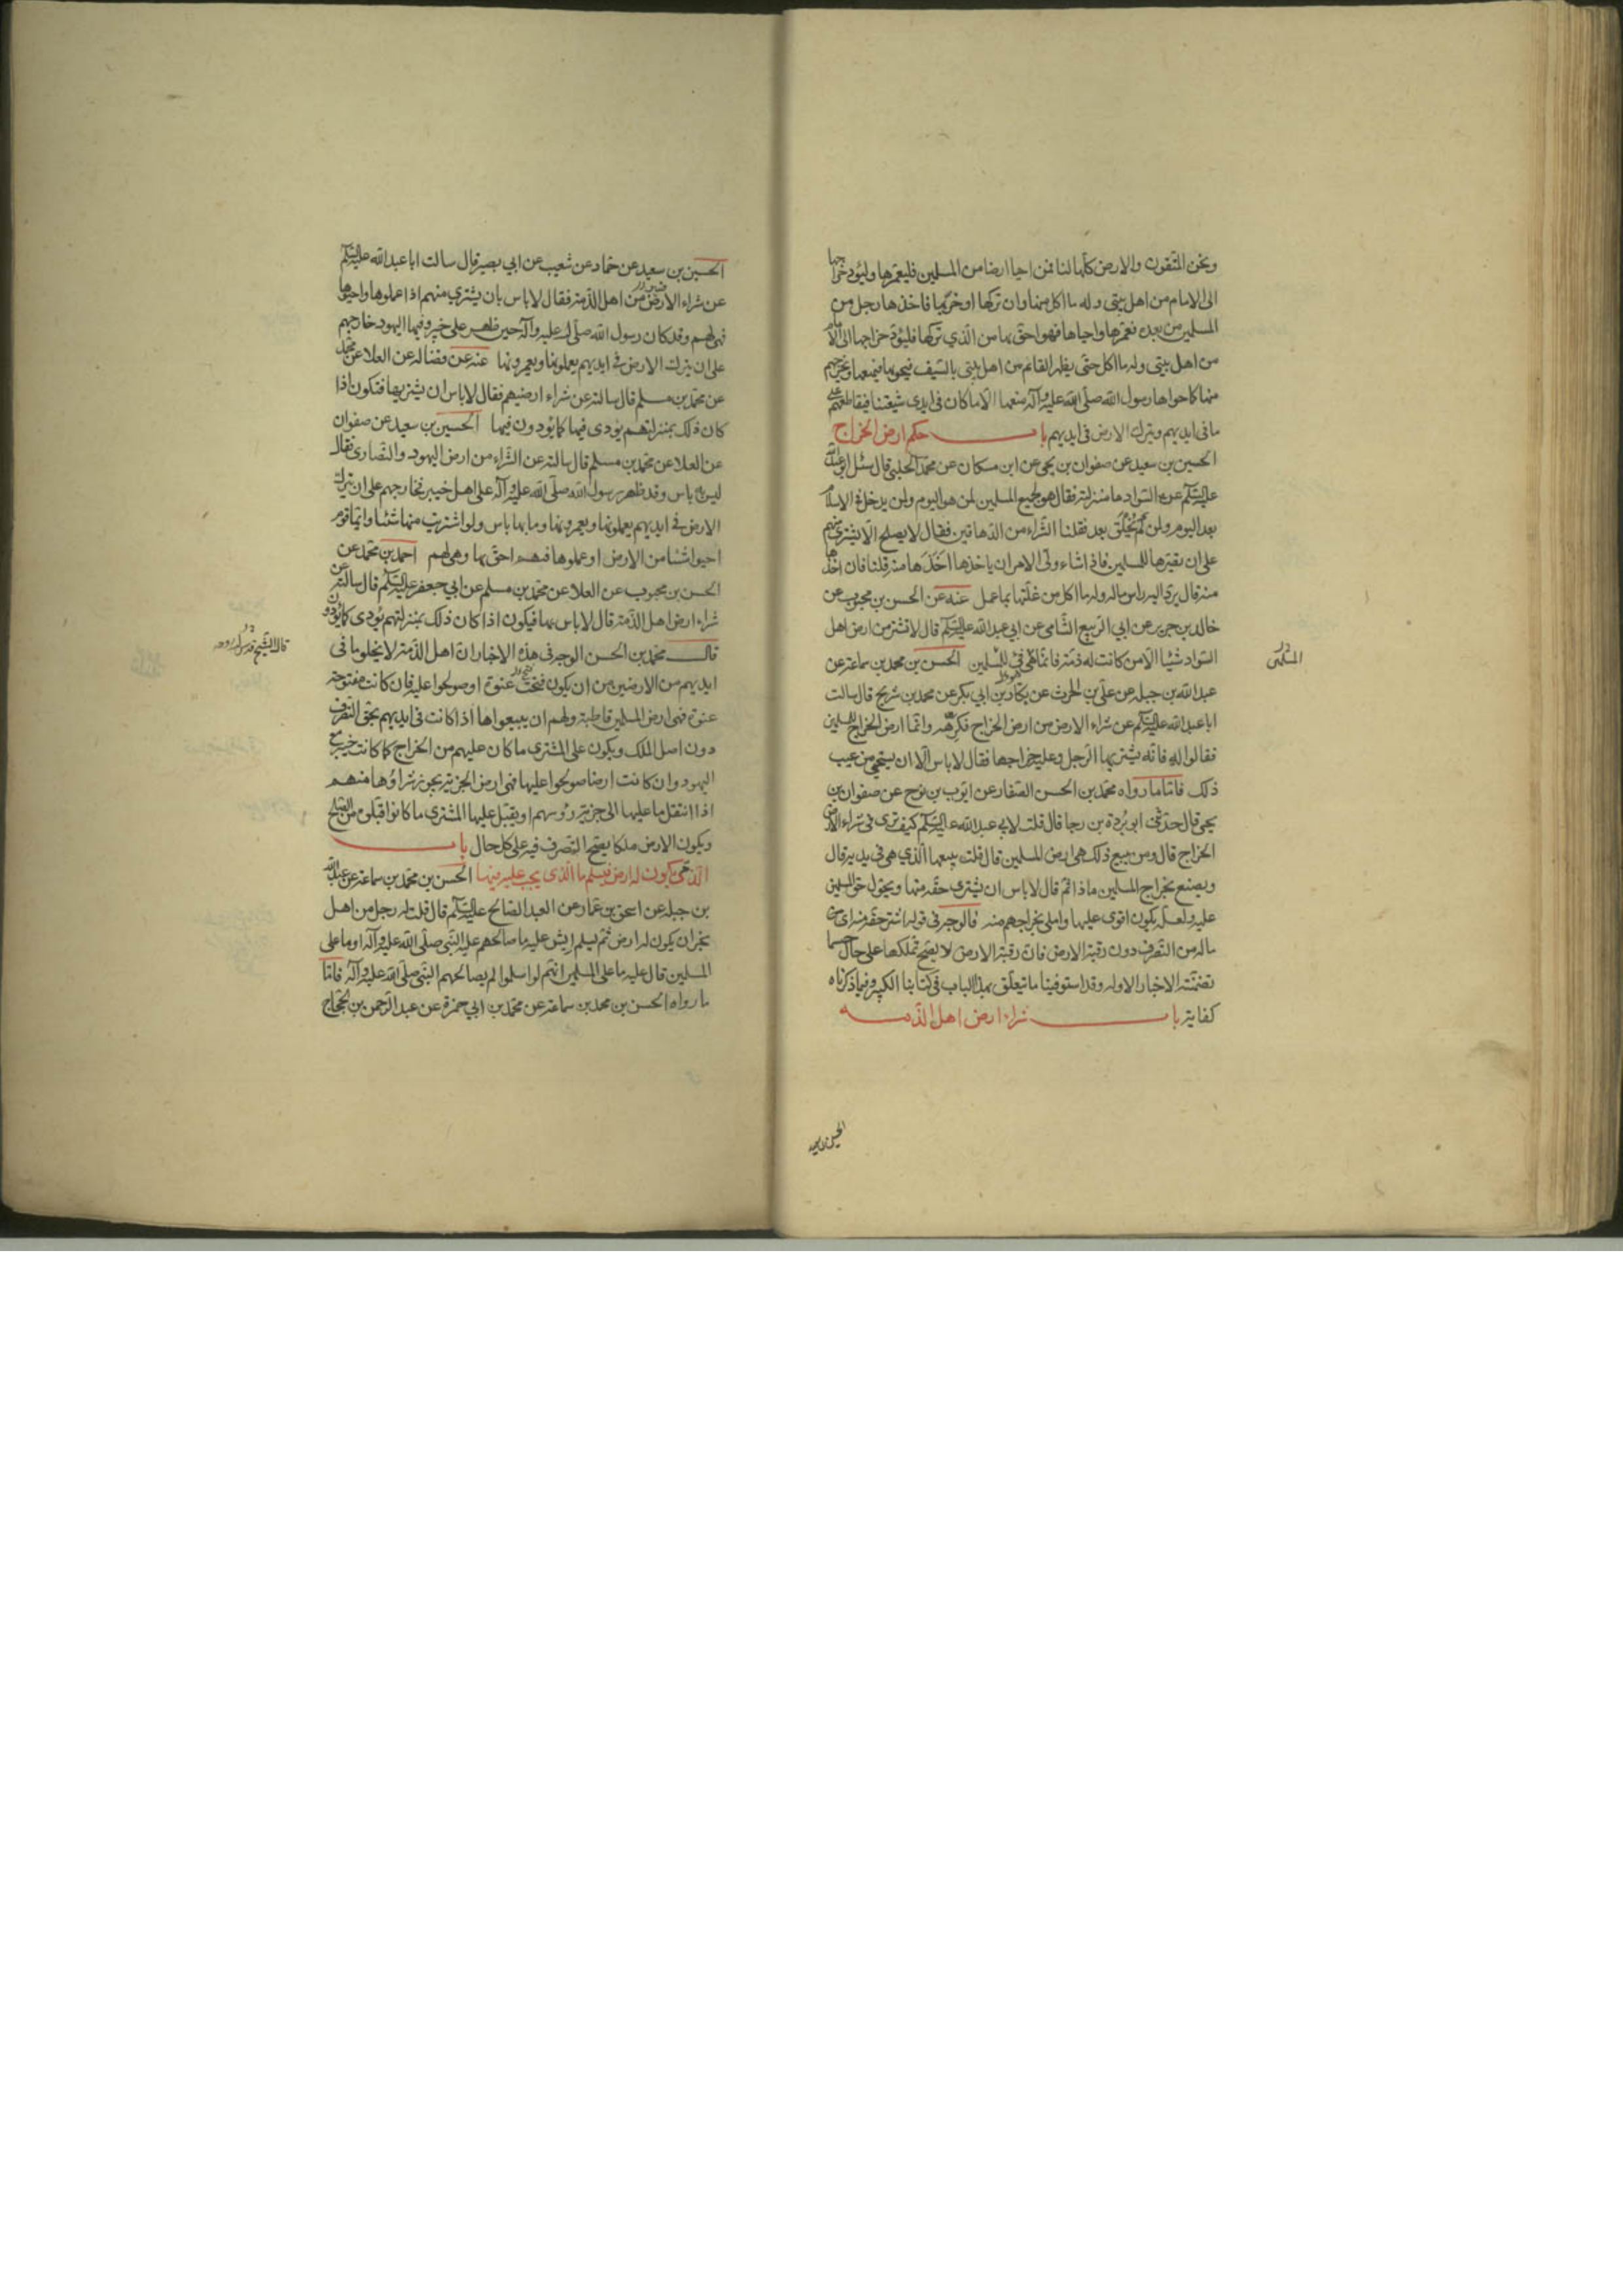 ونحن المتقون والارض كلها لنا فمن احيا ارضا من المسلمين فليعمرها وليؤد خراجها
الى الامام من اهل بيتى وله ما اكل منها وان تركها او خربها فاخذها رجل من
المسلمين من بعده فعمرها واحياها فهو احق بها من الذي تركها فليؤد خراجها الى الامام
من اهل بيتى وله ما اكل حتى يظهر القائم من اهل بيتى بالسيف فيحويها فيمنعها ويخرجهم
منها كما حواها رسول الله صلى الله عليه وآله ومنعها الا ما كان فى ايدى شيعتنا فيقاطعهم على
ما فى ايديهم ويترك الارض فى ايديهم باب حكم ارض الخراج
الحسين بن سعيد عن صفوان بن يحيى عن ابن مسكان عن محمد الحلبي قال سئل ابو عبدالله
عليه السلم عن السواد ما منزلته فقال هو لجميع المسلمين لمن هو اليوم ولمن يدخل فى الاسلام
بعد اليوم ولمن لم يخلق بعد فقلنا الشراء من الدهاقين فقال لا يصلح الا ان يشترى منهم
على ان يصيرها للمسلمين فاذا شاء ولى الامر ان ياخذها اخذها منه قلنا فان اخذها
منه قال يرد اليه راس ماله وله ما اكل من غلتها بما عمل عنه عن الحسن بن محبوب عن
خالد بن جرير عن ابي الربيع الشامى عن ابي عبد الله عليه السلم قال لا تشتر من ارض اهل
السواد شيئا الا من كانت له ذمة فانما هى فئ للمسلمين الحسن بن محمد بن سماعة عن
المسلمين
عبد الله بن جبلة عن على بن الحرث عن بكار بن ابي بكر عن محمد بن شريح قال سالت
ابا عبد الله عليه السلم عن شراء الارض من ارض الخراج فكرهه وانما ارض الخراج للمسلمين
فقالوا له فانه يشتريها الرجل وعليه خراجها فقال لا باس الا ان يستحيى من عيب
ذلك فاما ما رواه محمد بن الحسن الصفار عن ايوب بن نوح عن صفوان بن
يحيى قال حدثنى ابو بردة بن رجا قال قلت لابي عبد الله عليه السلم كيف ترى فى شراء الارض
الخراج قال ومن يبيع ذلك هى ارض المسلمين قال قلت يبيعها الذي هى فى يديه قال
ويصنع بخراج المسلمين ماذا ثم قال لا باس ان يشترى حقه منها ويحول حق المسلمين
عليه ولعله يكون اقوى عليها واملى بخراجهم منه فالوجه فى قوله اشتر حقه منها اى
ماله من التصرف دون رقبة الارض فان رقبة الارض لا يصح تملكها على حال حسبما
تضمنته الاخبار الاوله وقد استوفينا ما يتعلق بهذا الباب فى كتابنا الكبير وفيما ذكرناه
كفاية باب شراء ارض اهل الذمه
الحسين بن سعيد
الحسين بن سعيد عن حماد عن شعيب عن ابي بصير قال سالت ابا عبد الله عليه السلم
عن شراء الارضين من اهل الذمة فقال لا باس بان يشترى منهم اذا عملوها واحيوها
فهى لهم وقد كان رسول الله صلى الله عليه وآله حين ظهر على خيبر وفيها اليهود خارجهم
على ان يترك الارض فى ايديهم يعملونها ويعمرونها عنه عن فضالة عن العلا عن محمد
عن محمد بن مسلم قال سالته عن شراء ارضيهم فقال لا باس ان يشتريها فتكون اذا
كان ذلك بمنزلتهم يؤدى فيها كما يؤدون فيها الحسين بن سعيد عن صفوان
عن العلا عن محمد بن مسلم قال سالته عن الشراء من ارض اليهود والنصارى فقال
ليس به باس وقد ظهر رسول الله صلى الله عليه وآله على اهل خيبر فخارجهم على ان يترك
الارض فى ايديهم يعملونها ويعمرونها وما بها باس ولو اشتريت منها شيئا وايما قوم
احيوا شيئا من الارض او عملوها فهم احق بها وهى لهم احمد بن محمد عن
الحسن بن محبوب عن العلا عن محمد بن مسلم عن ابي جعفر عليه السلم قال سالته عن
شراء ارض اهل الذمة قال لا باس بها فيكون اذا كان ذلك بمنزلتهم يؤدى كما يؤدون
قال محمد بن الحسن الوجه فى هذه الاخبار ان اهل الذمة لا يخلو ما فى
قال الشيخ قدس الله روحه
ايديهم من الارضين من ان يكون فتحت عنوة او صولحوا عليه فان كانت مفتوحة
عنوة فهى ارض المسلمين قاطبة ولهم ان يبيعوها اذا كانت فى ايديهم بحق التصرف
دون اصل الملك ويكون على المشترى ما كان عليهم من الخراج كما كانت خيبر مع
اليهود وان كانت ارضا صولحوا عليها فهى ارض الجزية يجوز شراؤها منهم
اذا انتقل ما عليها الى جزية رؤسهم او يقبل عليها المشترى ما كانوا قبلوه من الصلح
ويكون الارض ملكا يصح التصرف فيه على كل حال باب
الذمى يكون له ارض فيسلم ما الذى يجب عليه فيها الحسن بن محمد بن سماعة عن عبد الله
بن جبلة عن اسحق بن عمار عن العبد الصالح عليه السلم قال قلت له رجل من اهل
نجران يكون له ارض ثم يسلم ايش عليه ما صالحهم عليه النبى صلى الله عليه وآله او ما على
المسلمين قال عليه ما على المسلمين انهم لو اسلموا لم يصالحهم النبى صلى الله عليه وآله فاما
ما رواه الحسن بن محمد بن سماعة عن محمد بن ابي حمزة عن عبد الرحمن بن الحجاج